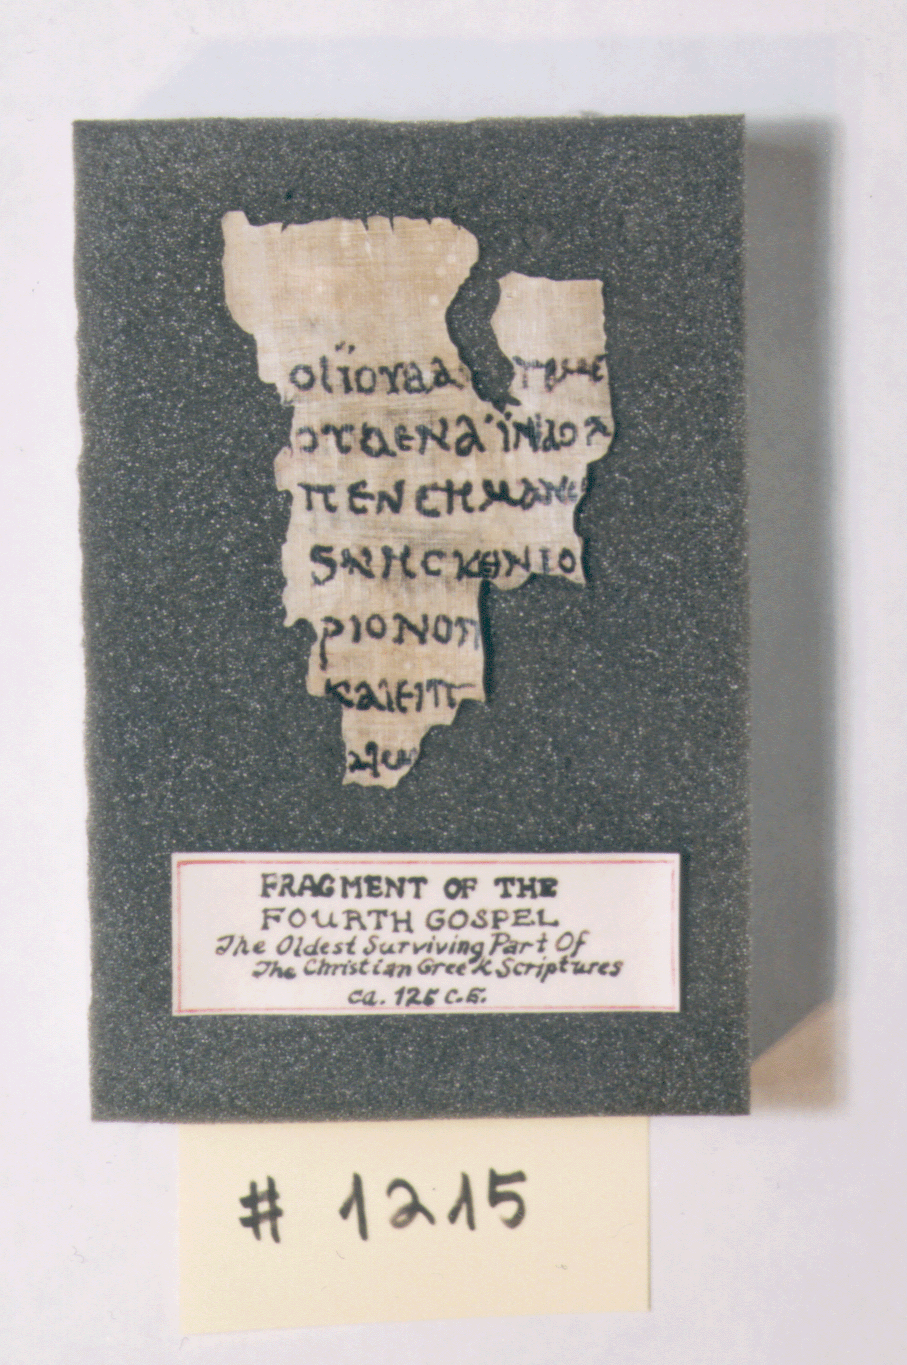 οιϊουδα ημε
οτωενα ϊνιδοπ
πενσημαινω
ϛνησκθνιο
ριονοπ
καιειπ
FRAGMENT OF THE
FOURTH GOSPEL
The Oldest Surviving Part Of
The Christian Greek Scriptures
ca. 125 C.E.
# 1215